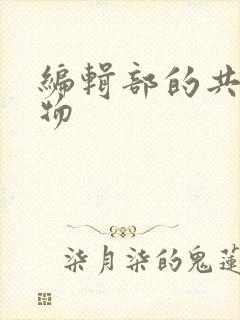 編輯部的共
物
柒月柒的鬼蓮